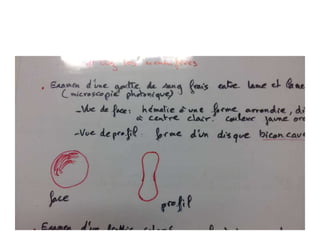 chez les mammifères
• Examen d'une goutte de sang frais entre lame et lame
(microscopie photonique)
-Vue de face: hématie a une forme arrondie, di
à centre clair. couleur jaune ora
-Vue de profil: forme d'un disque biconcave
face
profil